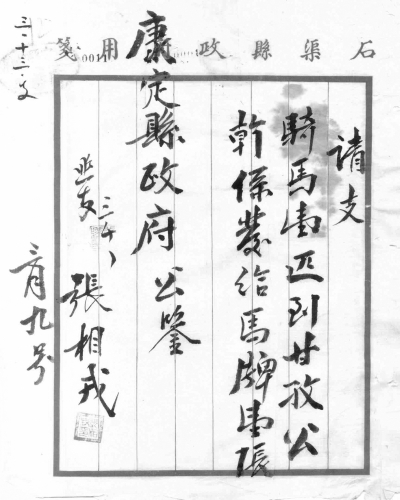 石渠縣政用箋
請支
騎馬壹匹到甘孜公
幹係發給馬牌壹張
康定縣政府公鑒
張相戎
三月九號
三·十三·文